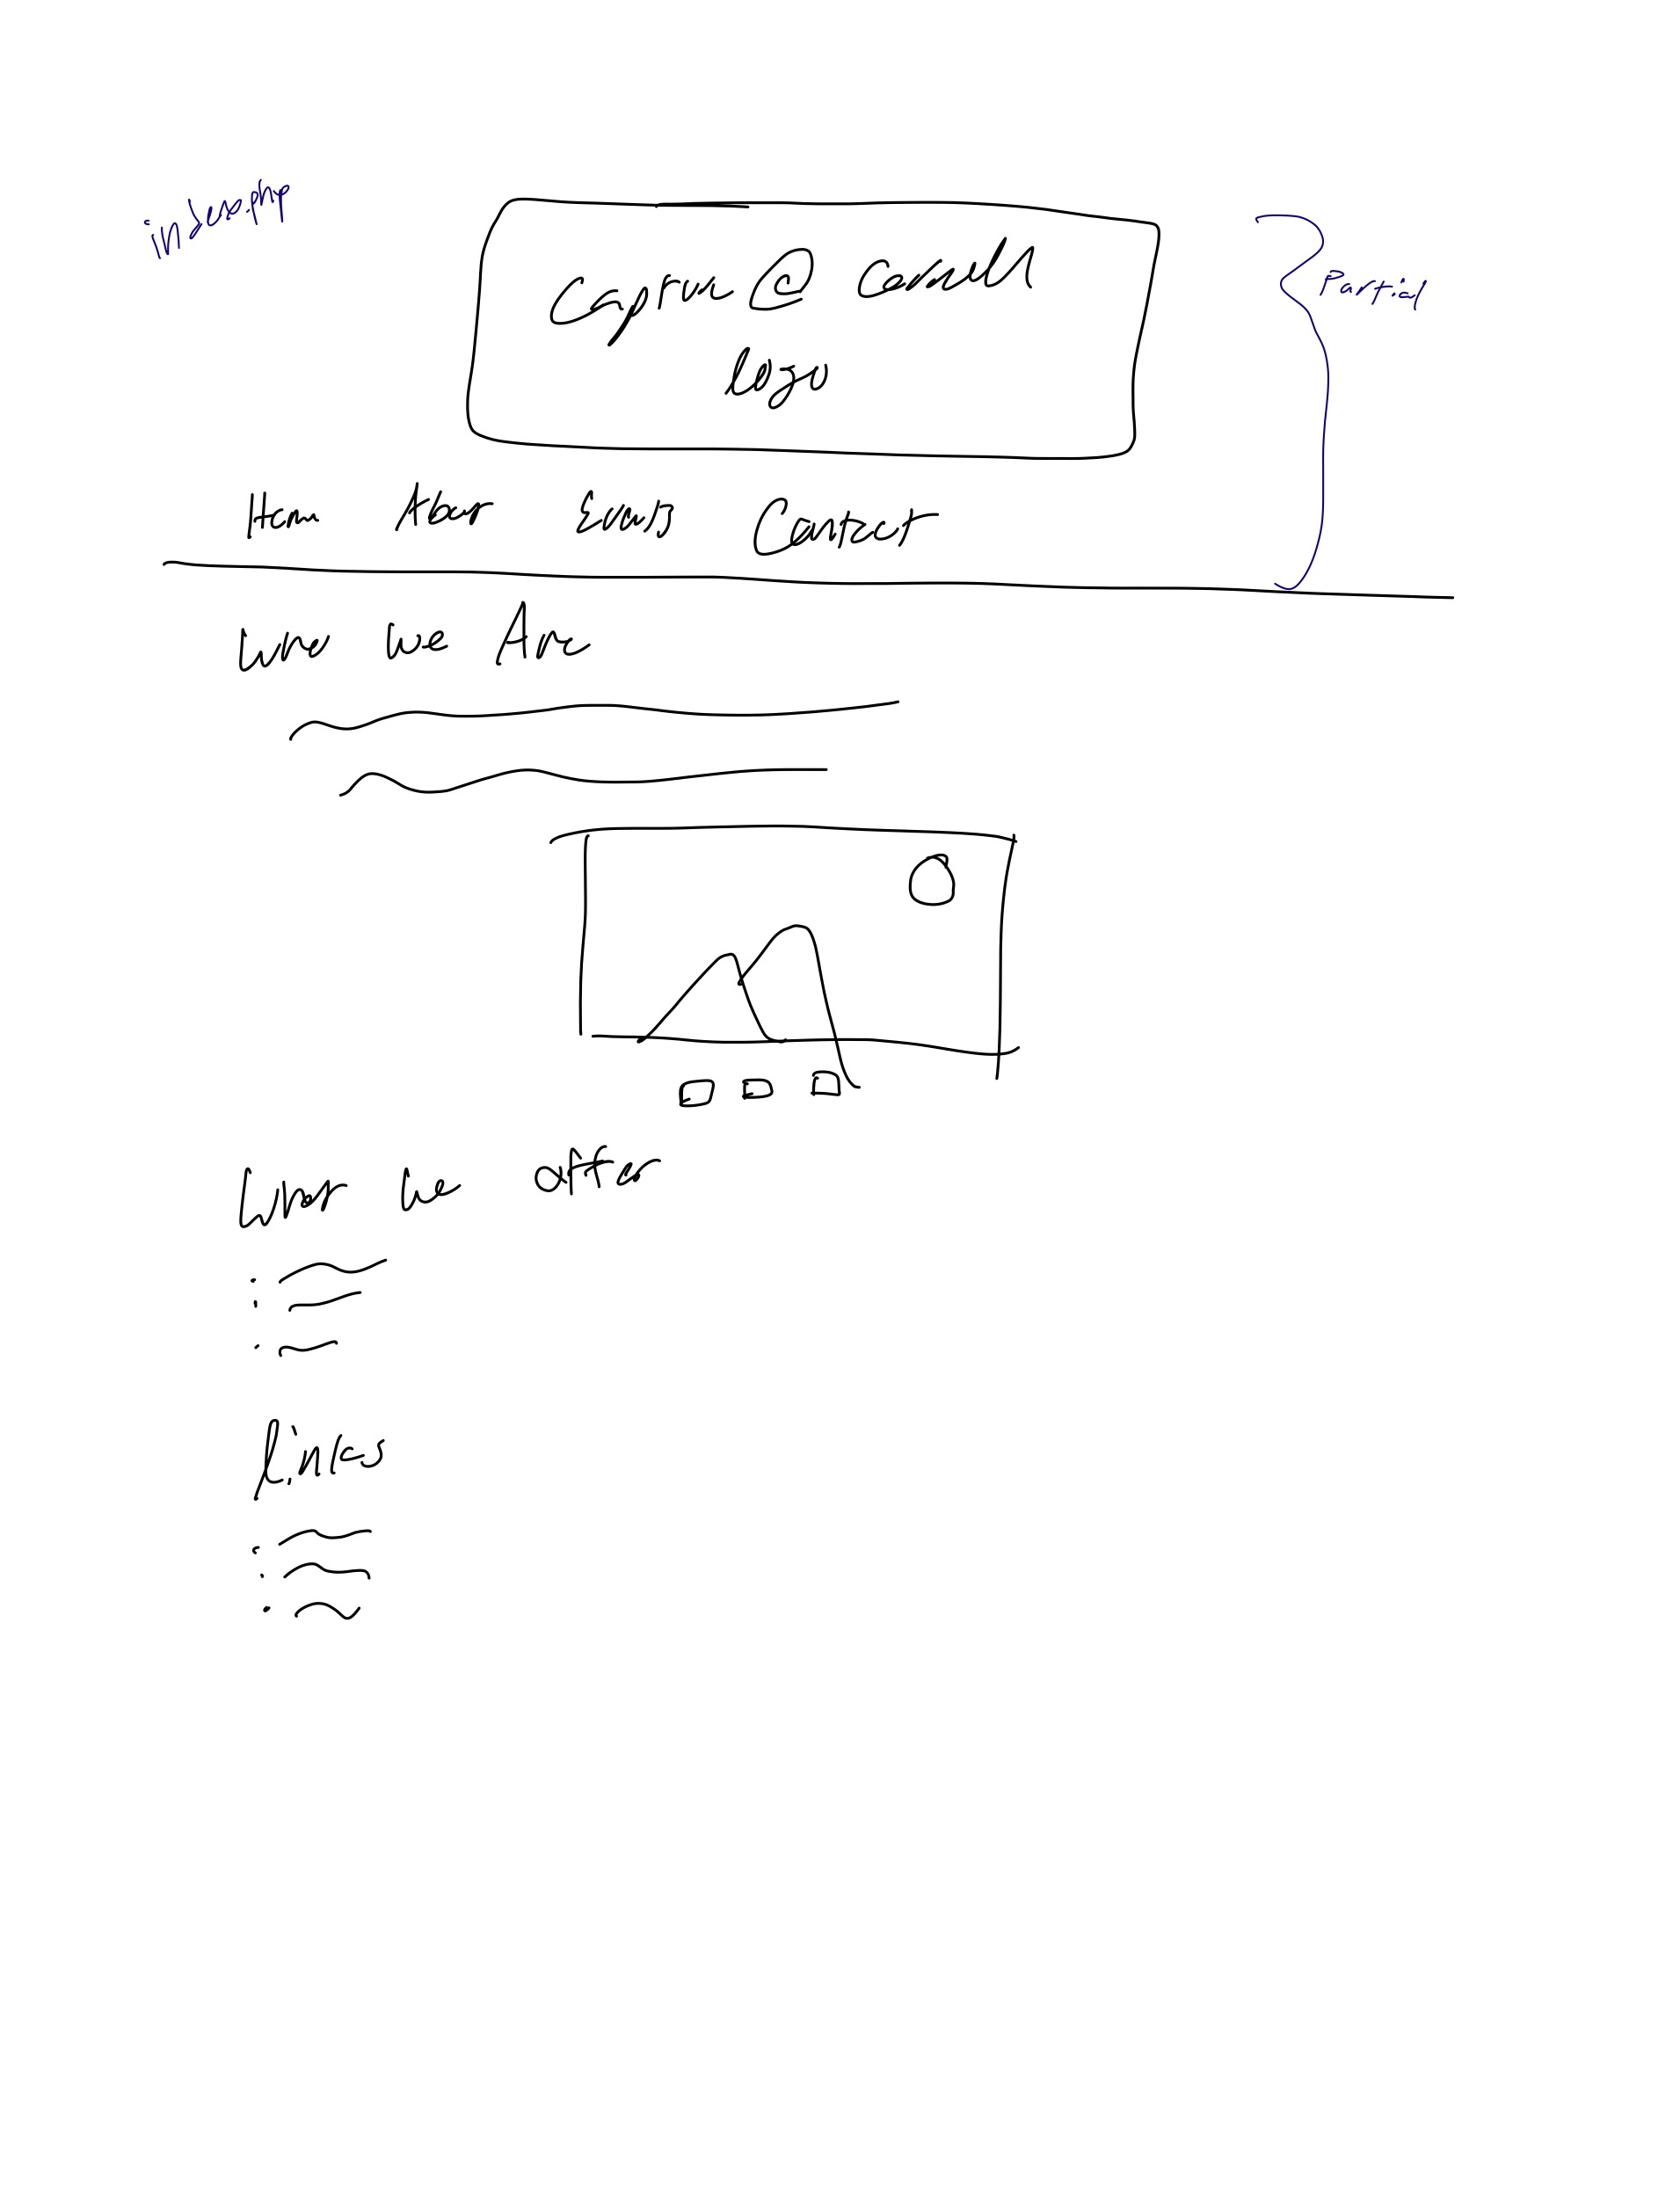 index.php
Cayuga @ Cornell
logo
Partial
Home About Events Contact
Who We Are
What we offer
Links